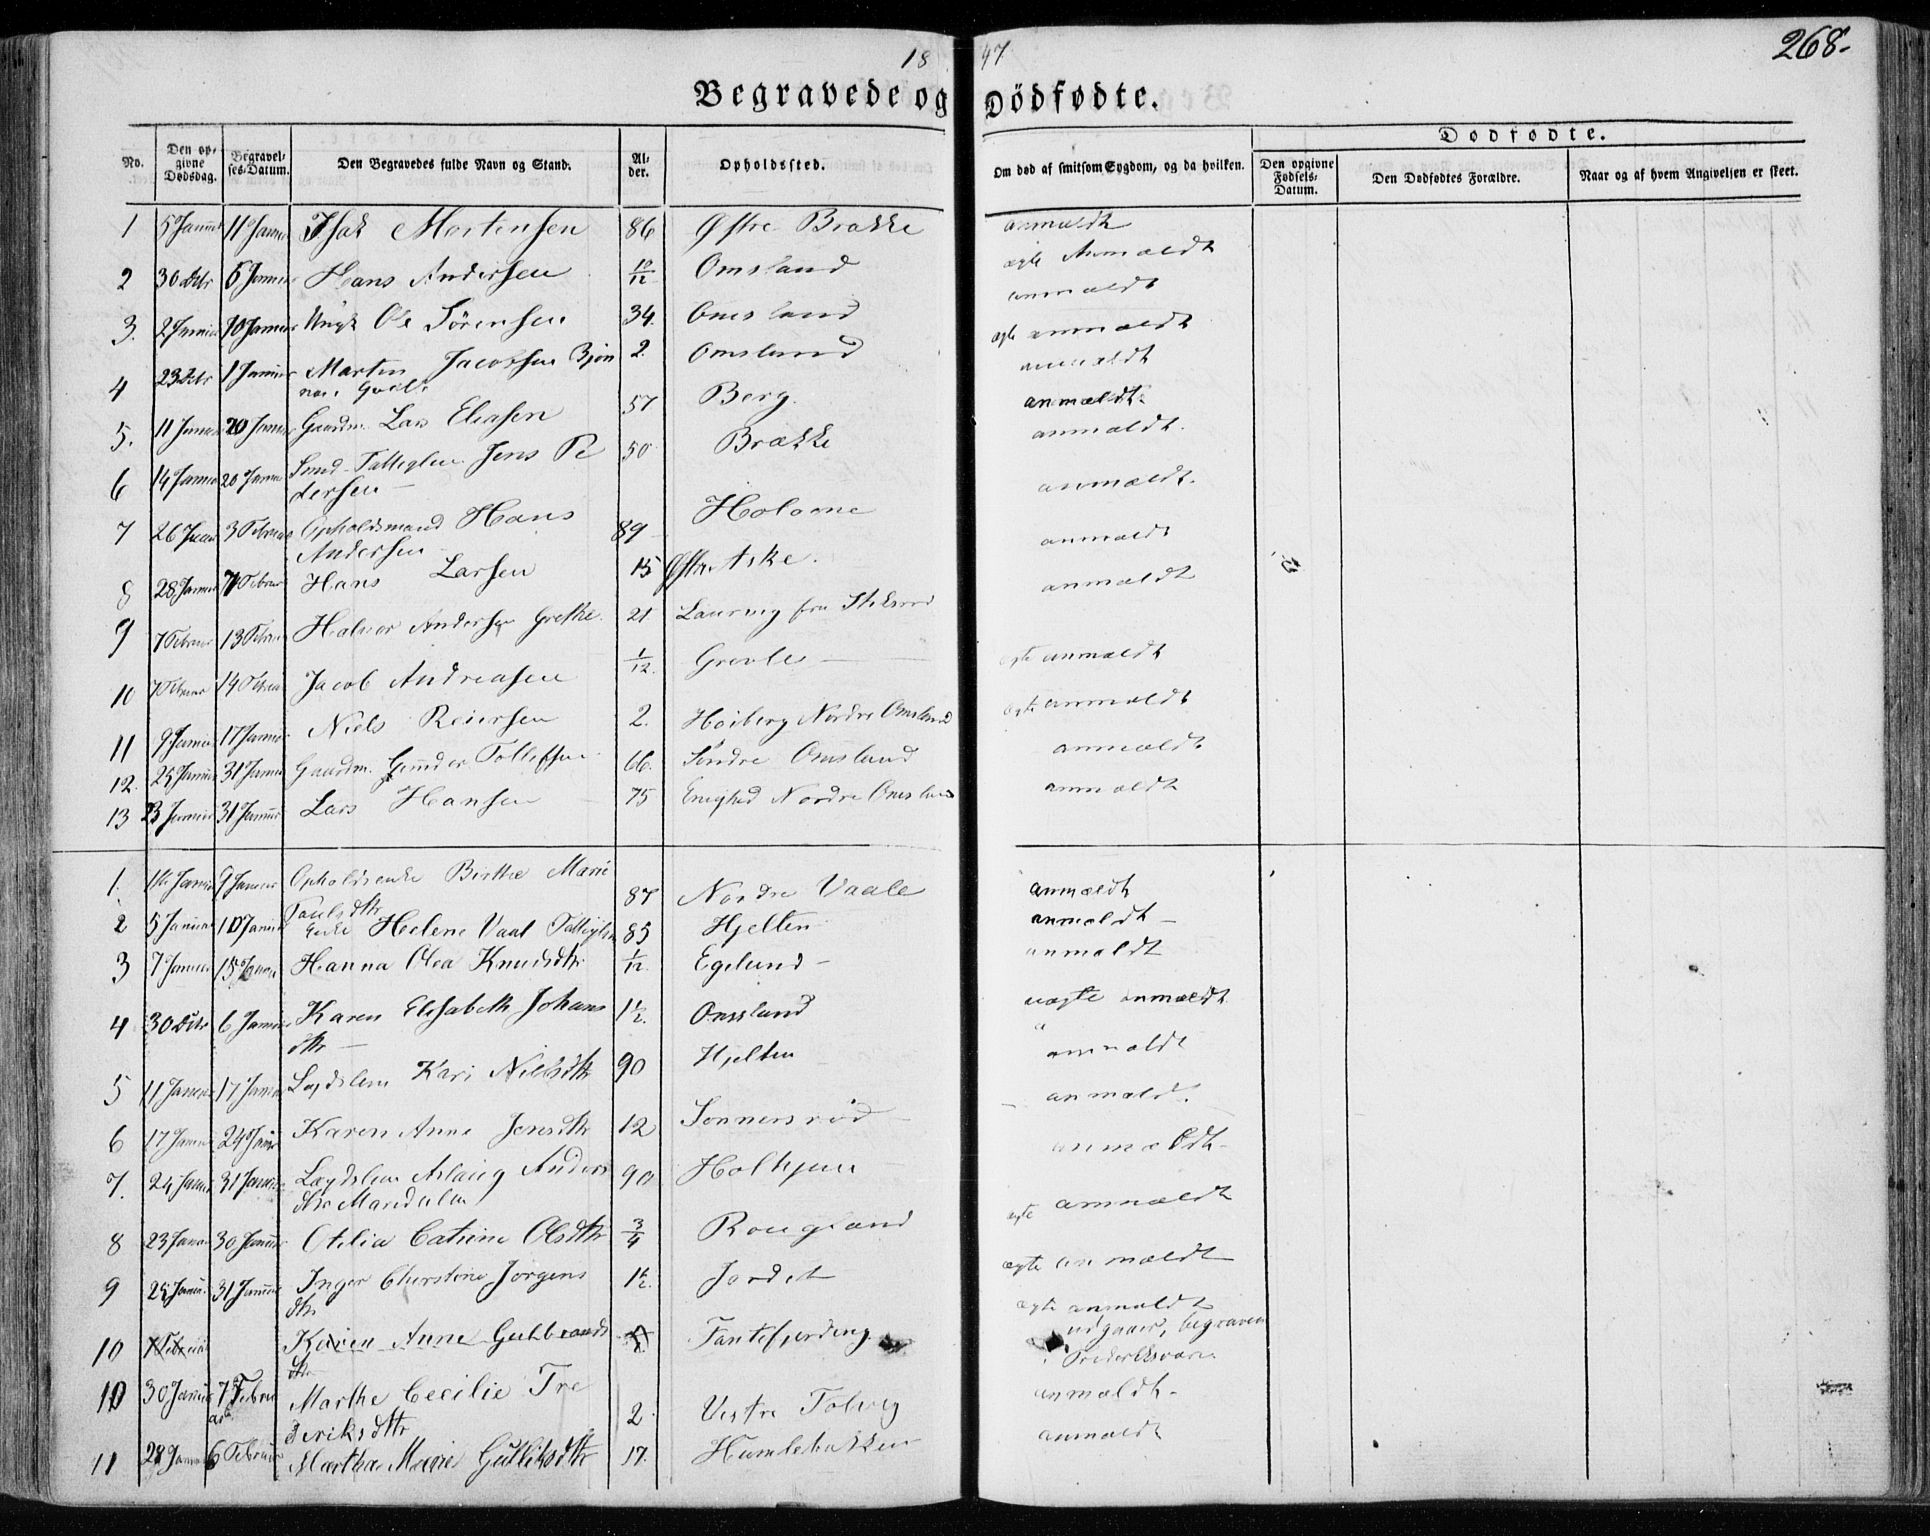 1847
268.
Begravede og Dödfødte.
Dødfødte.
No. Den opgivne Dødsdag. Begravelses-Datum. Den Begravedes fulde Navn og Stand. Alder. Opholdssted. Om død af smitsom Sygdom, og da hvilken. Den opgivne Fødsels-Datum. Den Dødfødtes Forældre. Naar og af hvem Angivelsen er skeet.
1 5 Januar 11 Januar Isak Mortensen 86 Østre Brække anmældt
2 30 Decbr 6 Januar Hans Andersen 10/12 Omsland ægte Anmældt
3. 2 Januar 10 Januar Ole Sörensen 34. Omsland anmældt
4 23 Decbr 1 Januar Morten Jacobsen 2. Omsland ægte anmældt
5. 11 Januar 20 Januar Gaardm. Lars Eliasen 57 Berg. anmældt
6 14 Januar 20 Januar Jens Pe
dersen 50 Brække anmældt
7 26 Januar 3 Februar Opholdsmand Hans
Andersen 89 anmældt.
8 28 Januar 7 Februar Hans Larsen 15 Østre Aske. anmældt
9 7 Februar 13 Februar Halvor Andersen 21 Laurvig fra anmældt
10 7 Februar 14 Februar Jacob Andreasen 1/12. Grevle ægte anmældt
11 9 Januar 17 Januar Niels Reiersen 2. Höiberg Nordre Omsland ægte anmældt
12. 25 Januar 31 Januar Gaardm. Tollefsen 66. Söndre Omsland anmældt
13 23 Januar 31 Januar Lars Hansen 75 Nordre Omsland anmældt
1. Januar 9 Januar Opholdsenke Birthe Marie
Paulsdtr 87 Nordre Vaale anmældt
2 5 Januar 10 Januar Enke Helene 85 Hjelten anmældt
3 7 Januar 15 Januar Hanna Olea Knudsdtr 1/12. Egelund anmældt
4 30 Decbr 6 Januar Karen Elisabeth Johans
dtr 1½. Omsland uægte anmældt
5 11 Januar 17 Januar Lægdslem Kari Nielsdtr 90 Hjelten anmældt
6 17 Januar 24 Januar Karen Anne Jensdtr 12 Sonnersröd anmældt.
7. 24 Januar 31 Januar Lægdslem Aslaug Anders
dtr 90 anmældt
8 23 Januar 30 Januar Otilia Catrine Olsdtr 3/4 ægte anmældt
9 25 Januar. 31 Januar Inger Christine Jorgens
dtr 1½. Jordet ægte anmældt
10 Februar Karen Anne Gulbrands
dtr Fantefjerding ægte anmældt
udgaaer, begraven
i Frederiksværn
10 30 Januar 7 Februar Marthe Cecilie Fre
deriksdttr 2 Vestre Tolvig anmældt.
11 28 Januar 6 Februar Martha Marie Gulliksdttr 17. Humlebakken anmældt